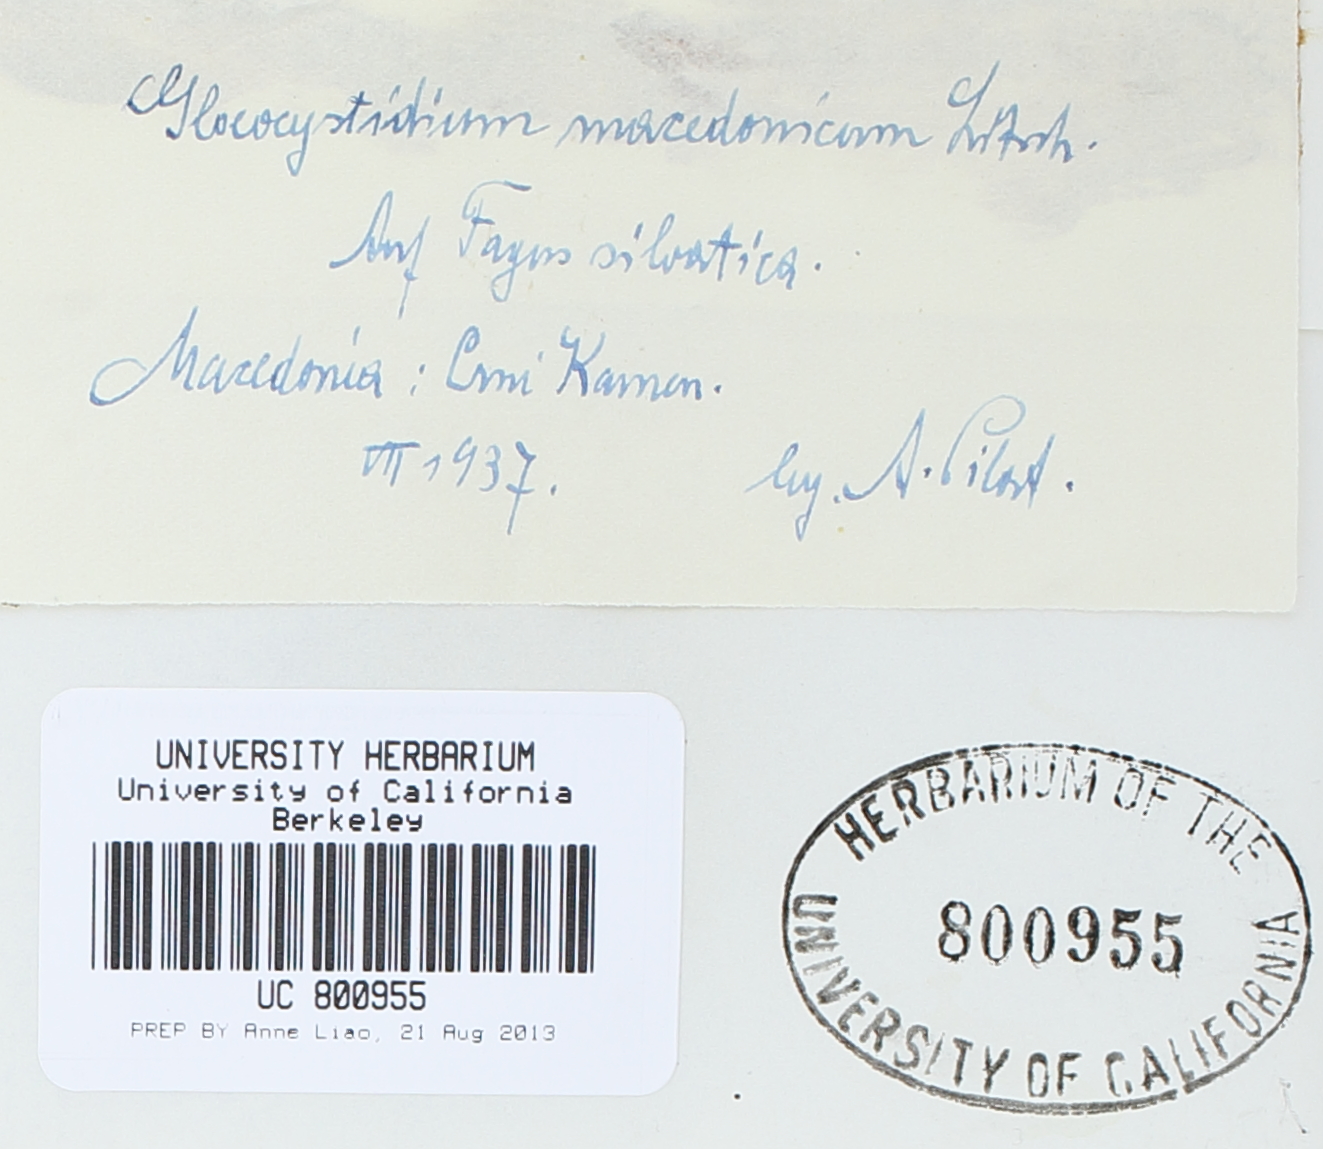 Gloeocystidium macedonicum Litsch.
Auf Fagus silvatica.
Macedonia : Crni Kamen.
VII 1937.
leg. A. Pilát.
UNIVERSITY HERBARIUM
University of California
Berkeley
UC 800955
PREP BY Anne Liao, 21 Aug 2013
HERBARIUM OF THE
800955
UNIVERSITY OF CALIFORNIA